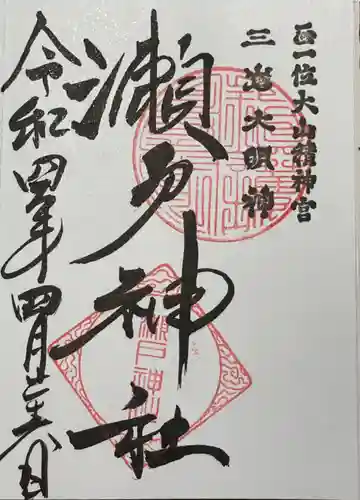 正一位大山積神宮
三島大明神
瀬戸神社
令和四年四月二十八日